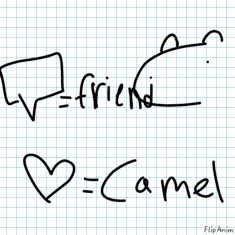 =friend
=Camel
FlipAnim